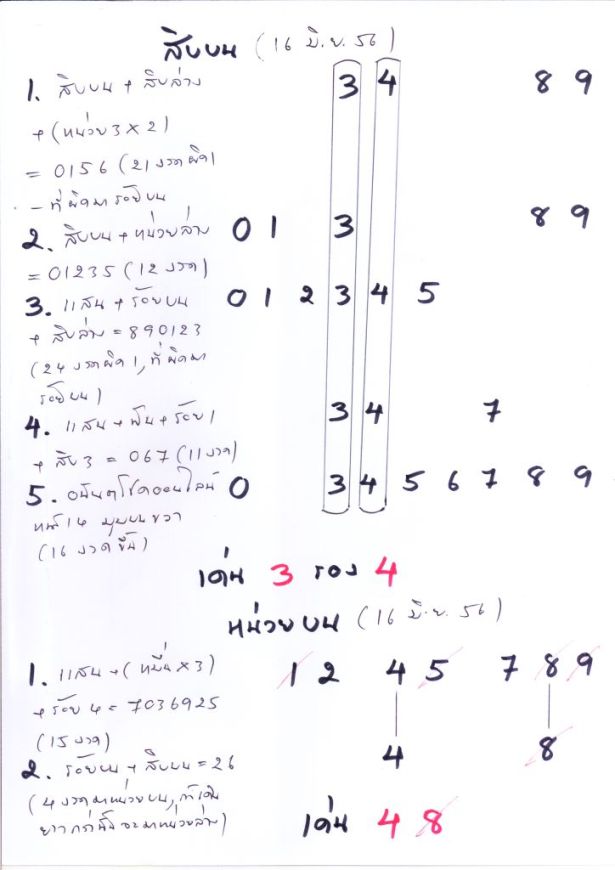 สิบบน (16 มิ.ย. 56)
1. สิบบน + สิบล่าง 3 4 8 9
+ (หน่วย 3 x 2)
= 0156 (21 งวดผิด 1
- ที่ผิดมาร้อยบน
2. สิบบน + หน่วยล่าง 0 1 3 8 9
= 01235 (12 งวด)
3. แสน + ร้อยบน 0 1 2 3 4 5
+ สิบล่าง = 890123
(24 งวดผิด 1, ที่ผิดมา
ร้อยบน)
4. แสน + พัน + ร้อย 1 3 4 7
+ สิบ 3 = 067 (11 งวด)
5. อนันตโชคออนไลน์ 0 3 4 5 6 7 8 9
หน้า 14 มุมบนขวา
(16 งวดขึ้น)
เด่น 3 รอง 4
หน่วยบน (16 มิ.ย. 56)
1. แสน + (หมื่น x 3) 1 2 4 5 7 8 9
+ ร้อย 4 = 7036925
(15 งวด) 4 8
2. ร้อยบน + สิบบน = 26
(4 งวดมาหน่วยบน, ถ้าเดิน
ยาวกว่านี้จะมาหน่วยล่าง)
เด่น 4 8